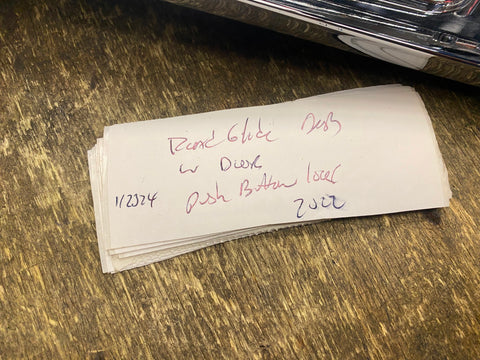 Road Glide Dash
w Door
11/2024 push Button lower
2022